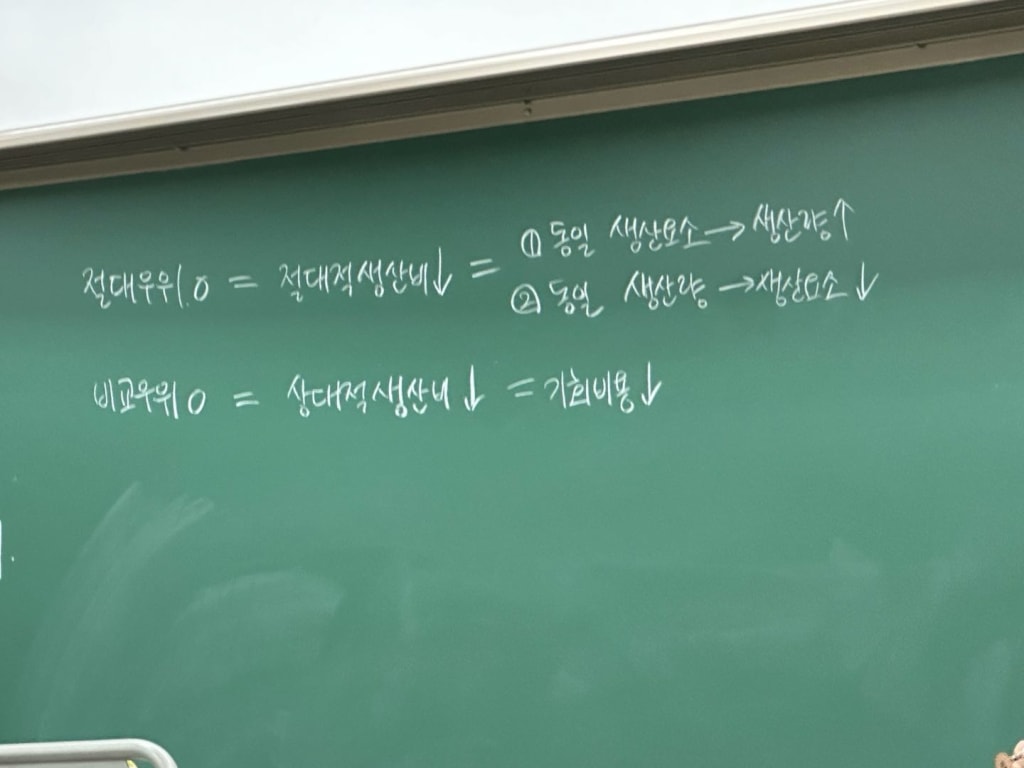 절대우위 O = 절대적생산비↓ = ① 동일 생산요소→생산량↑
② 동일 생산량→생산요소↓
비교우위 O = 상대적생산비↓ = 기회비용↓